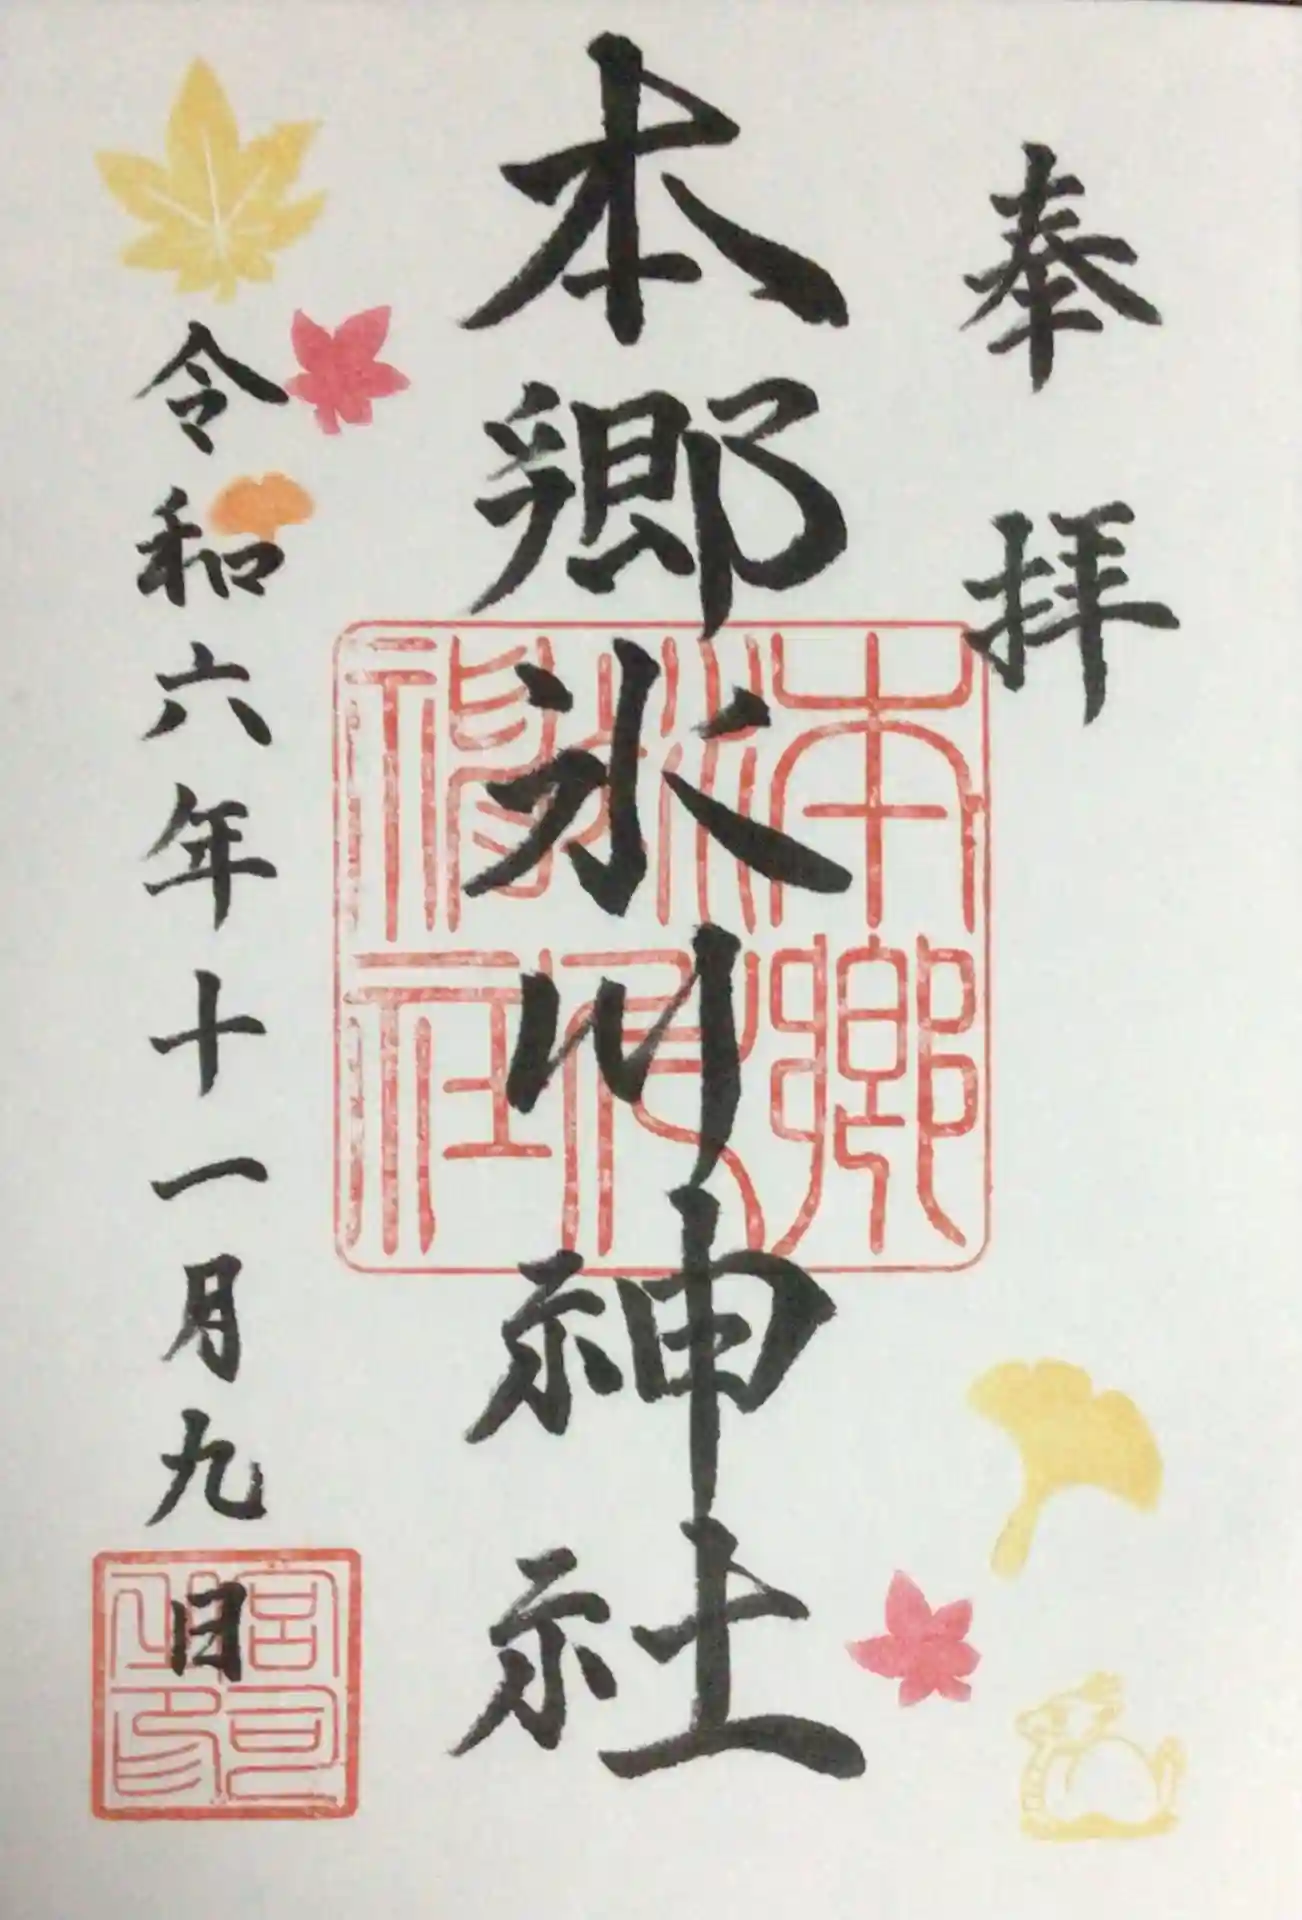 奉拝
本郷氷川神社
本郷氷川神社
令和六年十一月九日
宮司之印